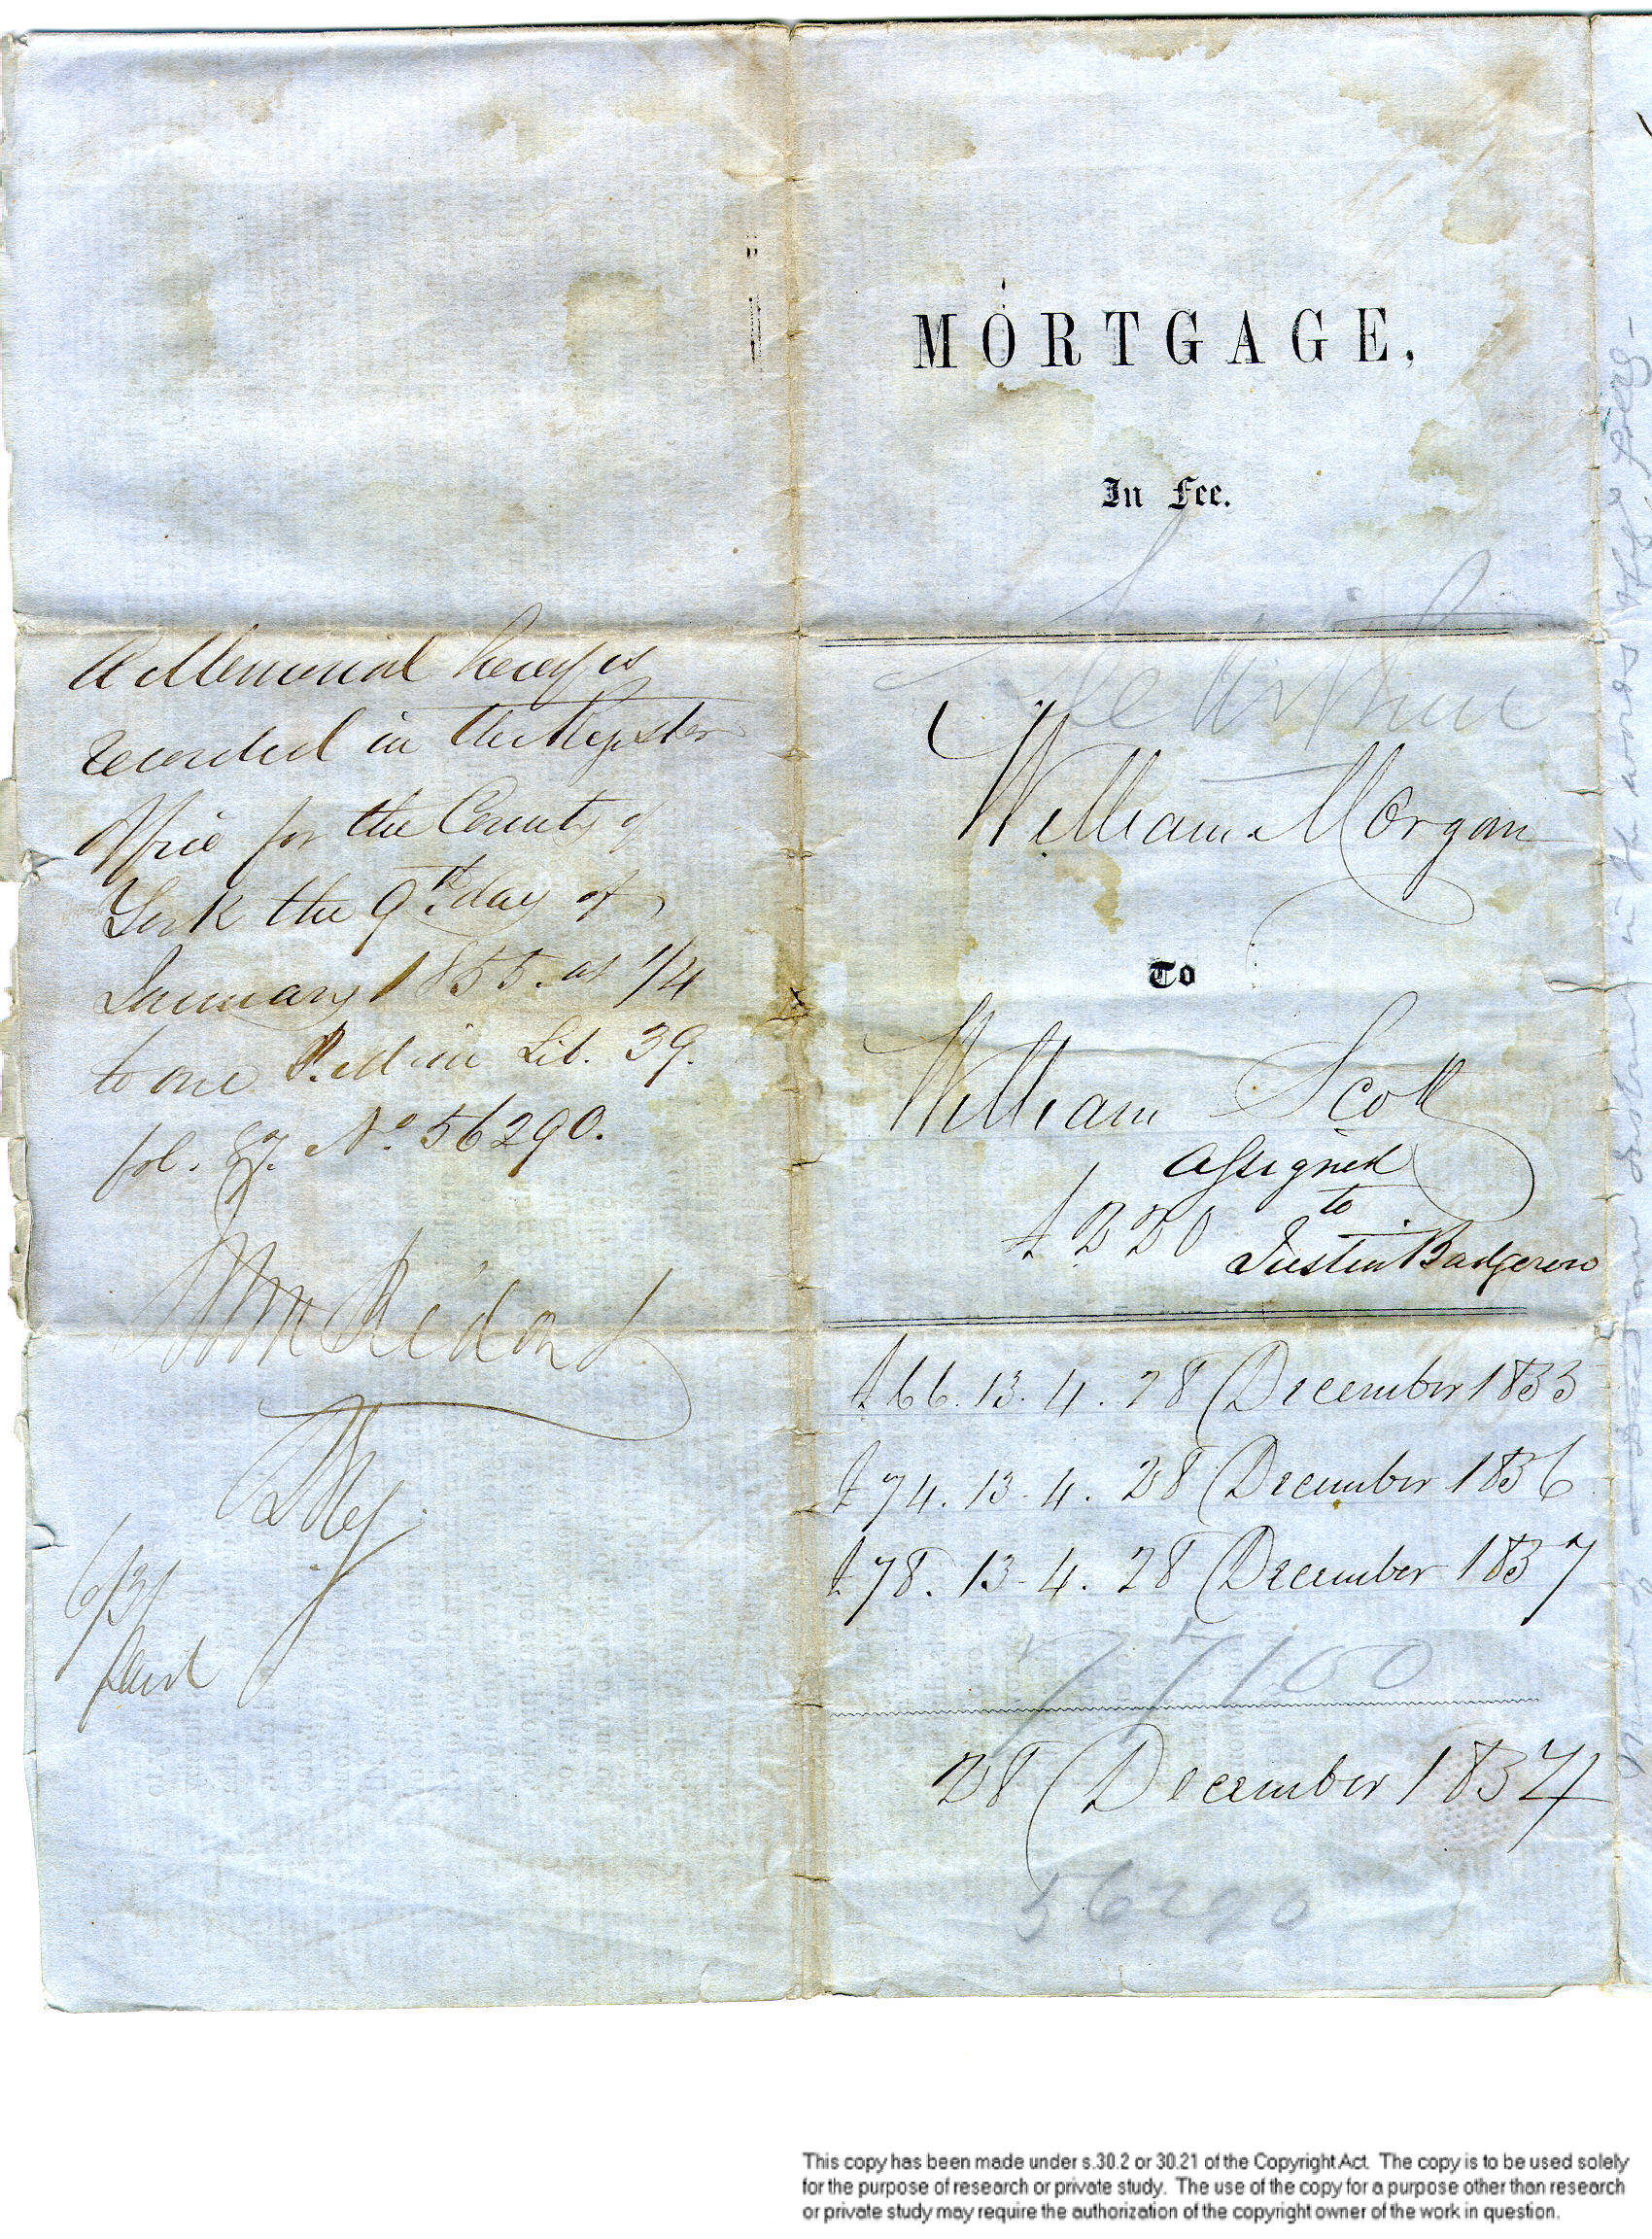 A Memorial hereof is
recorded in the Register
Office for the County of
York the 9th day of
January 1855. at 1/4
to one P.M in Lib. 39.
fol. 87. No. 56290.
6/3
paid
MORTGAGE.
In Fee.
William Morgan
To
William Scott
assigned
to
£220 Justin Badgerow
£66.13.4. 28 December 1855
£74.13.4. 28 December 1856
£78.13.4. 28 December 1857
77100
28 December 1854
56290
This copy has been made under s.30.2 or 30.21 of the Copyright Act. The copy is to be used solely
for the purpose of research or private study. The use of the copy for a purpose other than research
or private study may require the authorization of the copyright owner of the work in question.